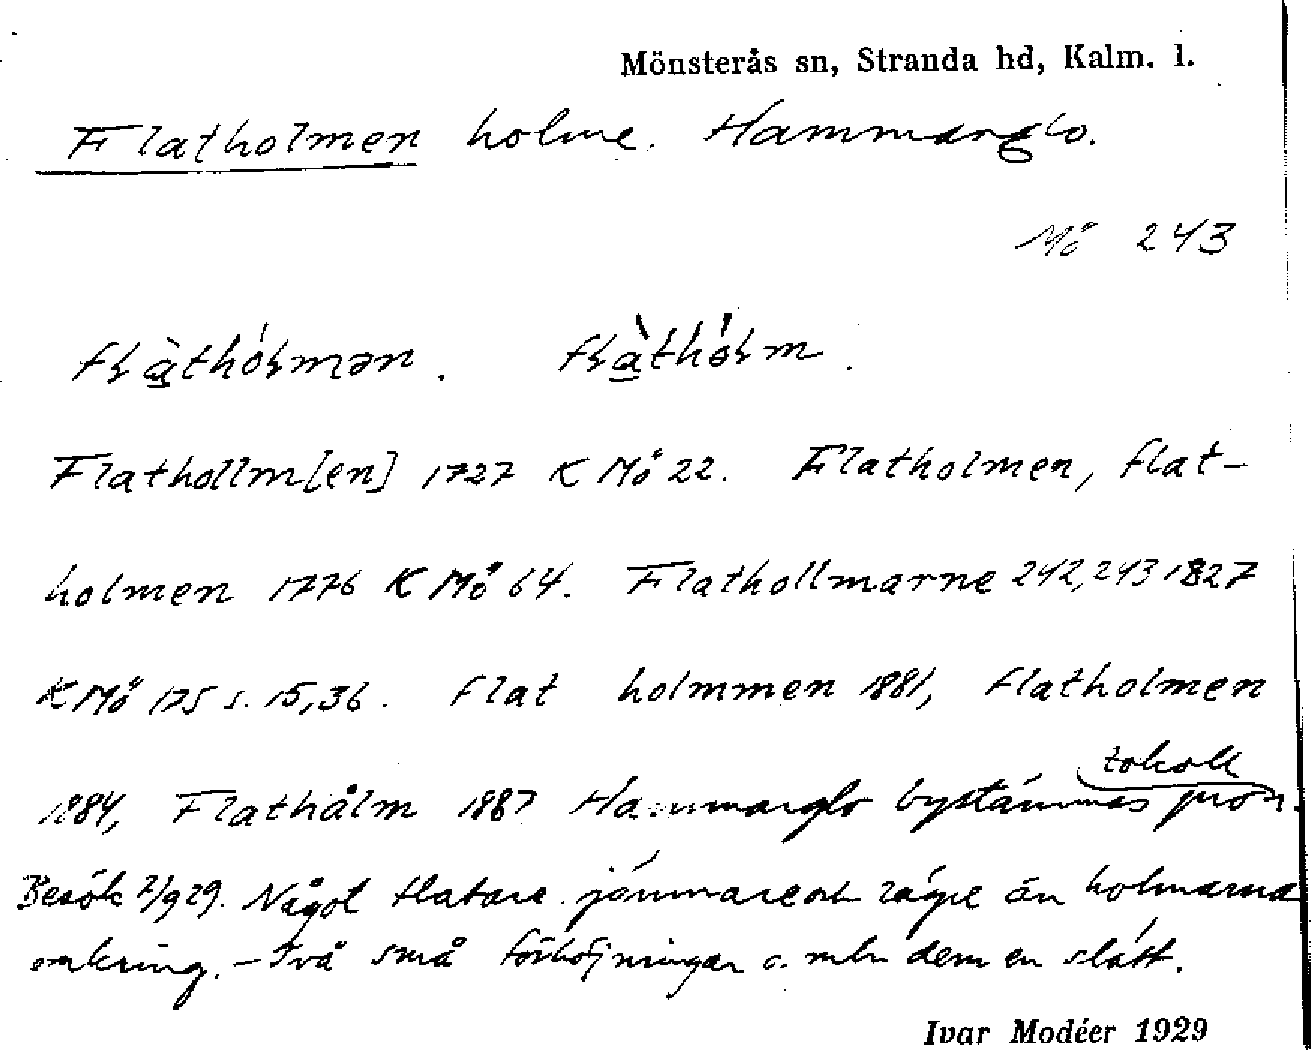 Mönsterås sn, Stranda hd, Kalm. l.
Flatholmen holme. Hammarglo.
Mö 243
flàthólmən. flàthólm.
Flathollm[en] 1727 K Mö 22. Flatholmen, flat-
holmen 1776 K Mö 64. Flathollmarne 242, 243 1827
K Mö 175 s. 15, 36. flat holmmen 1881, flatholmen
1884, Flathålm 1887 Hammarglo bystämmas pro-
tokoll
Besök 2/9 29. Något flatare jämnare och lägre än holmarna
omkring. – Två små förhöjningar o. mln dem en slätt.
Ivar Modéer 1929